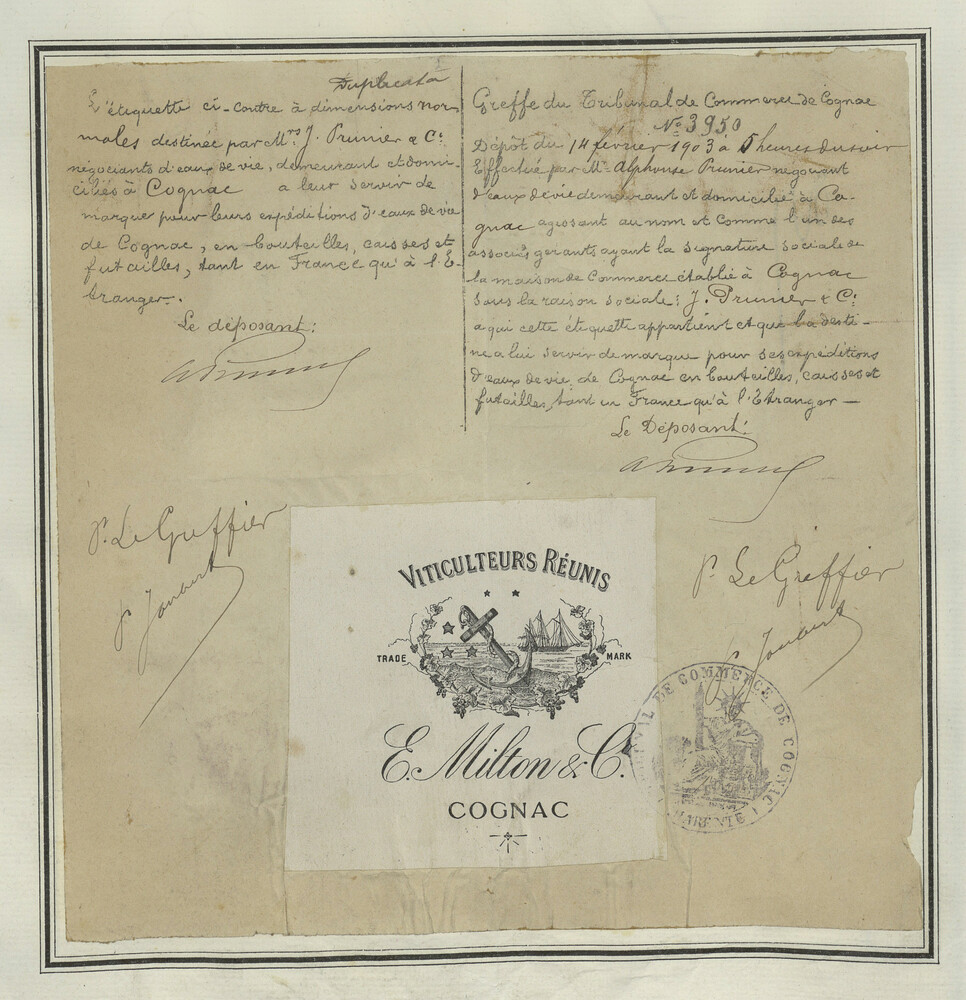 Duplicata
L'étiquette ci-contre à dimensions nor-
males destinée par Mrs J. Prunier & Cie
négociants d'eaux de vie, demeurant et domi-
ciliés à Cognac a leur servir de
marque pour leurs expéditions d'eaux de vie
de Cognac, en bouteilles, caisses et
futailles, tant en France qu'à l'E-
tranger.
Le déposant:
Greffe du Tribunal de Commerce de Cognac
No 3950
Dépôt du 14 février 1903 à 5 heures du soir
Effectué par Mr Alphonse Prunier négociant
d'eaux de vie demeurant et domicilié à Co-
gnac agissant au nom et comme l'un des
associés gérants ayant la signature sociale de
la maison de Commerce établie à Cognac
sous la raison sociale: J. Prunier & Cie
a qui cette étiquette appartient et que la desti-
ne a lui servir de marque pour ses expéditions
d'eaux de vie de Cognac en bouteilles, caisses et
futailles, tant en France qu'à l'Etranger—
Le Déposant:
P. Le Greffier
P. Le Greffier
VITICULTEURS RÉUNIS
TRADE MARK
E. Milton & Co.
COGNAC
TRIBUNAL DE COMMERCE DE COGNAC
CHARENTE